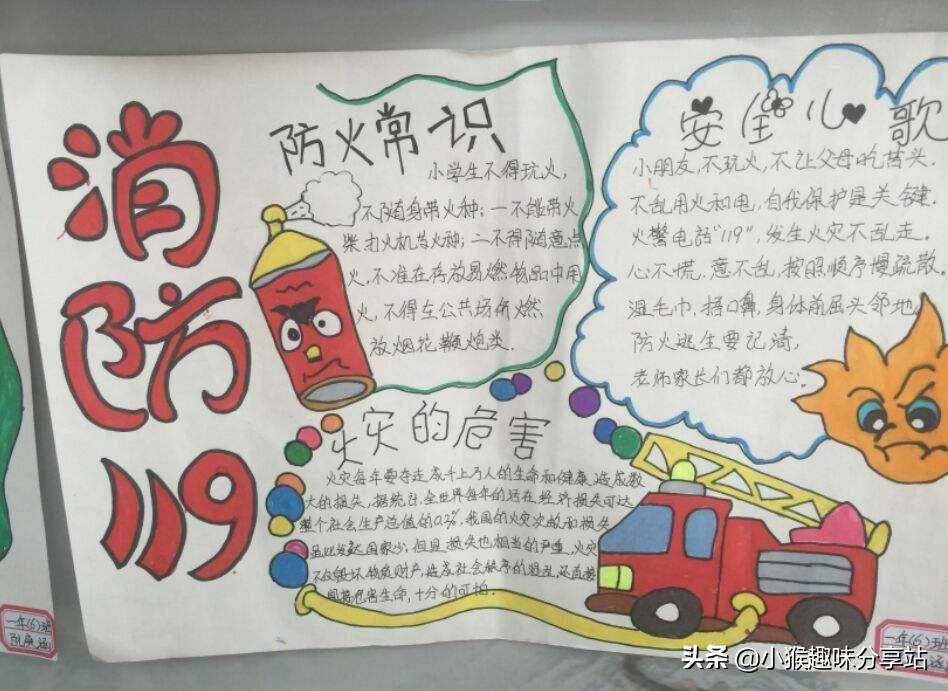 消
防
119
防火常识
小学生不得玩火,
不随身带火种:一不能带火
柴打火机等火种;二不得随意点
火,不准在存放易燃物品中用
火,不得在公共场所燃
放烟花鞭炮类.
安全儿歌
小朋友,不玩火,不让父母吃苦头.
不乱用火和电,自我保护是关键.
火警电话"119",发生火灾不乱走.
心不慌.意不乱,按照顺序慢疏散.
湿毛巾,捂口鼻,身体前屈头邻地
防火逃生要记清,
老师家长们都放心.
火灾的危害
火灾每年要夺走成千上万人的生命和健康,造成数
大的损失,据统计,全世界每年的火灾经济损失可达
整个社会生产总值的0.2%,我国的火灾次数和损失
虽比发达国家少,但损失也相当的严重,火灾
不仅毁坏物质财产,造成社会秩序的混乱,还直接
危害生命,十分的可怕.
一年(6)班
一年(6)班
头条 @小猴趣味分享站